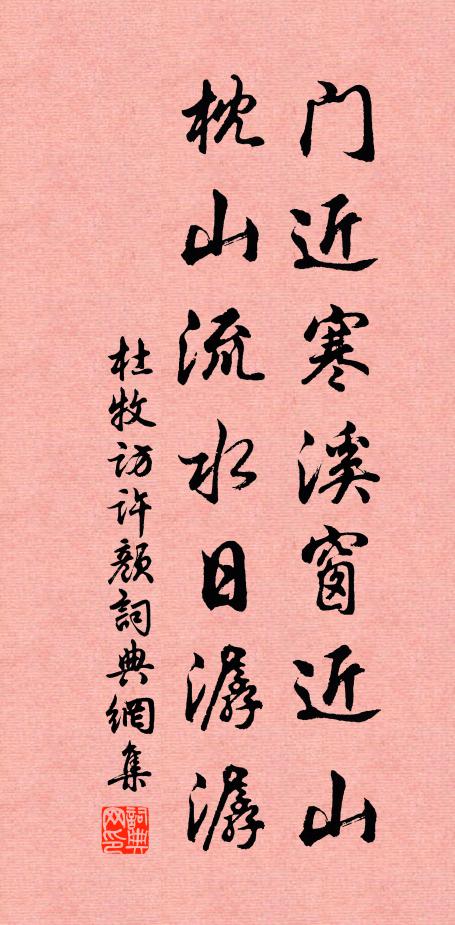 门近寒溪窗近山
枕山流水日潺潺
杜牧访许颜詞典網集
詞典网印